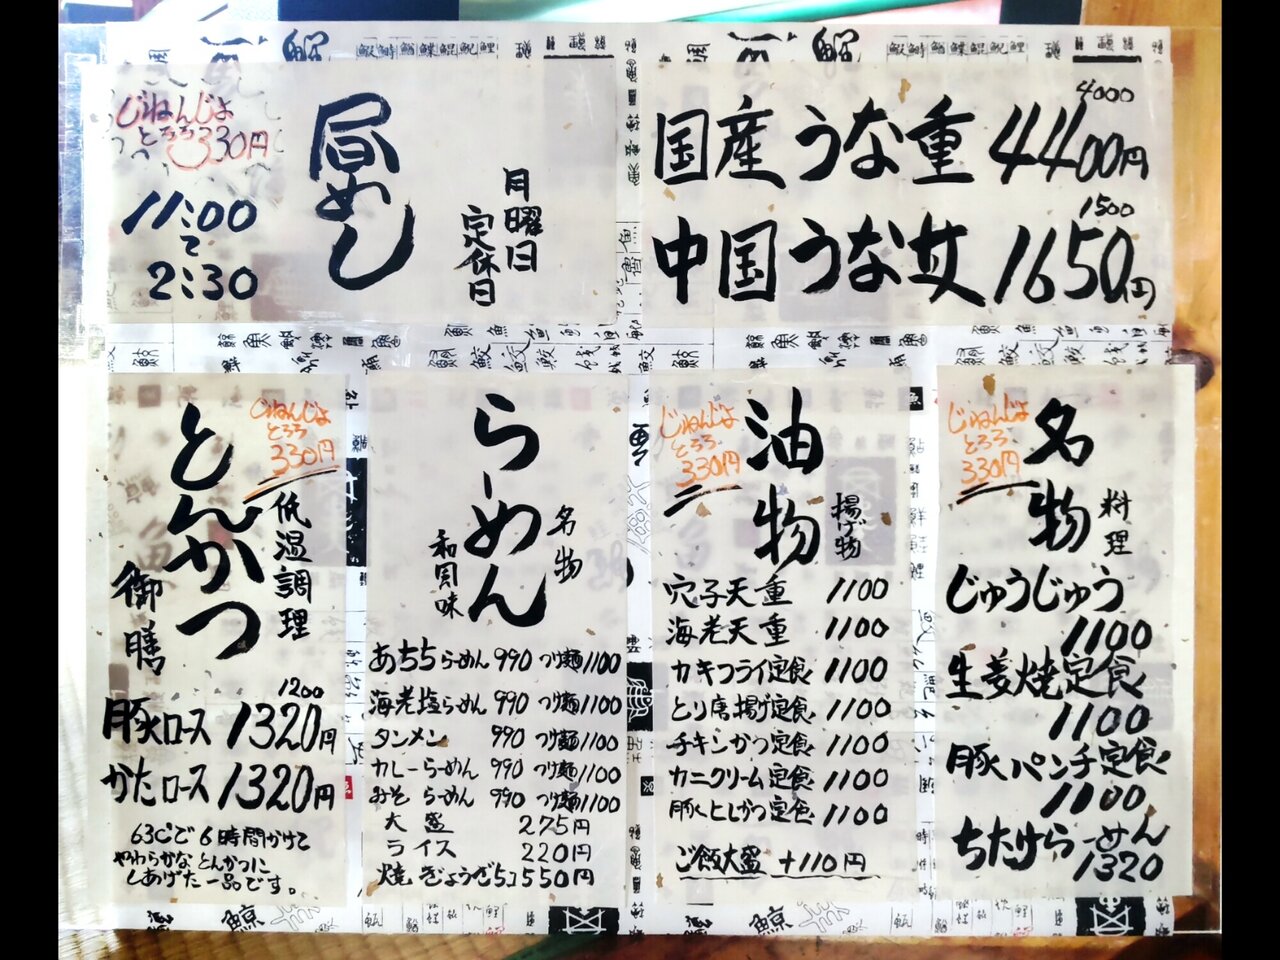 じねんじよ
とろろ330円
昼めし
11:00
〜
2:30
月曜日
定休日
4000
国産うな重 4400円
1500
中国うな丼 1650円
とんかつ
御膳
低温調理
じねんじよ
とろろ
330円
1200
豚ロース 1320円
かたロース 1320円
63℃で6時間かけて
やわらかなとんかつに
しあげた一品です。
らーめん
名物
和風味
あちちらーめん 990 つけ麺1100
海老塩らーめん 990 つけ麺1100
タンメン 990 つけ麺1100
カレーらーめん 990 つけ麺1100
みそらーめん 990 つけ麺1100
大盛 275円
ライス 220円
焼ぎょうざ5コ550円
じねんじよ
とろろ
330円
油物
揚げ物
穴子天重 1100
海老天重 1100
カキフライ定食 1100
とり唐揚げ定食 1100
チキンかつ定食 1100
カニクリーム定食 1100
豚ヒレかつ定食 1100
ご飯大盛 +110円
じねんじよ
とろろ
330円
名物
料理
じゅうじゅう
1100
生姜焼定食
1100
豚パンチ定食
1100
ちたけらーめん
1320